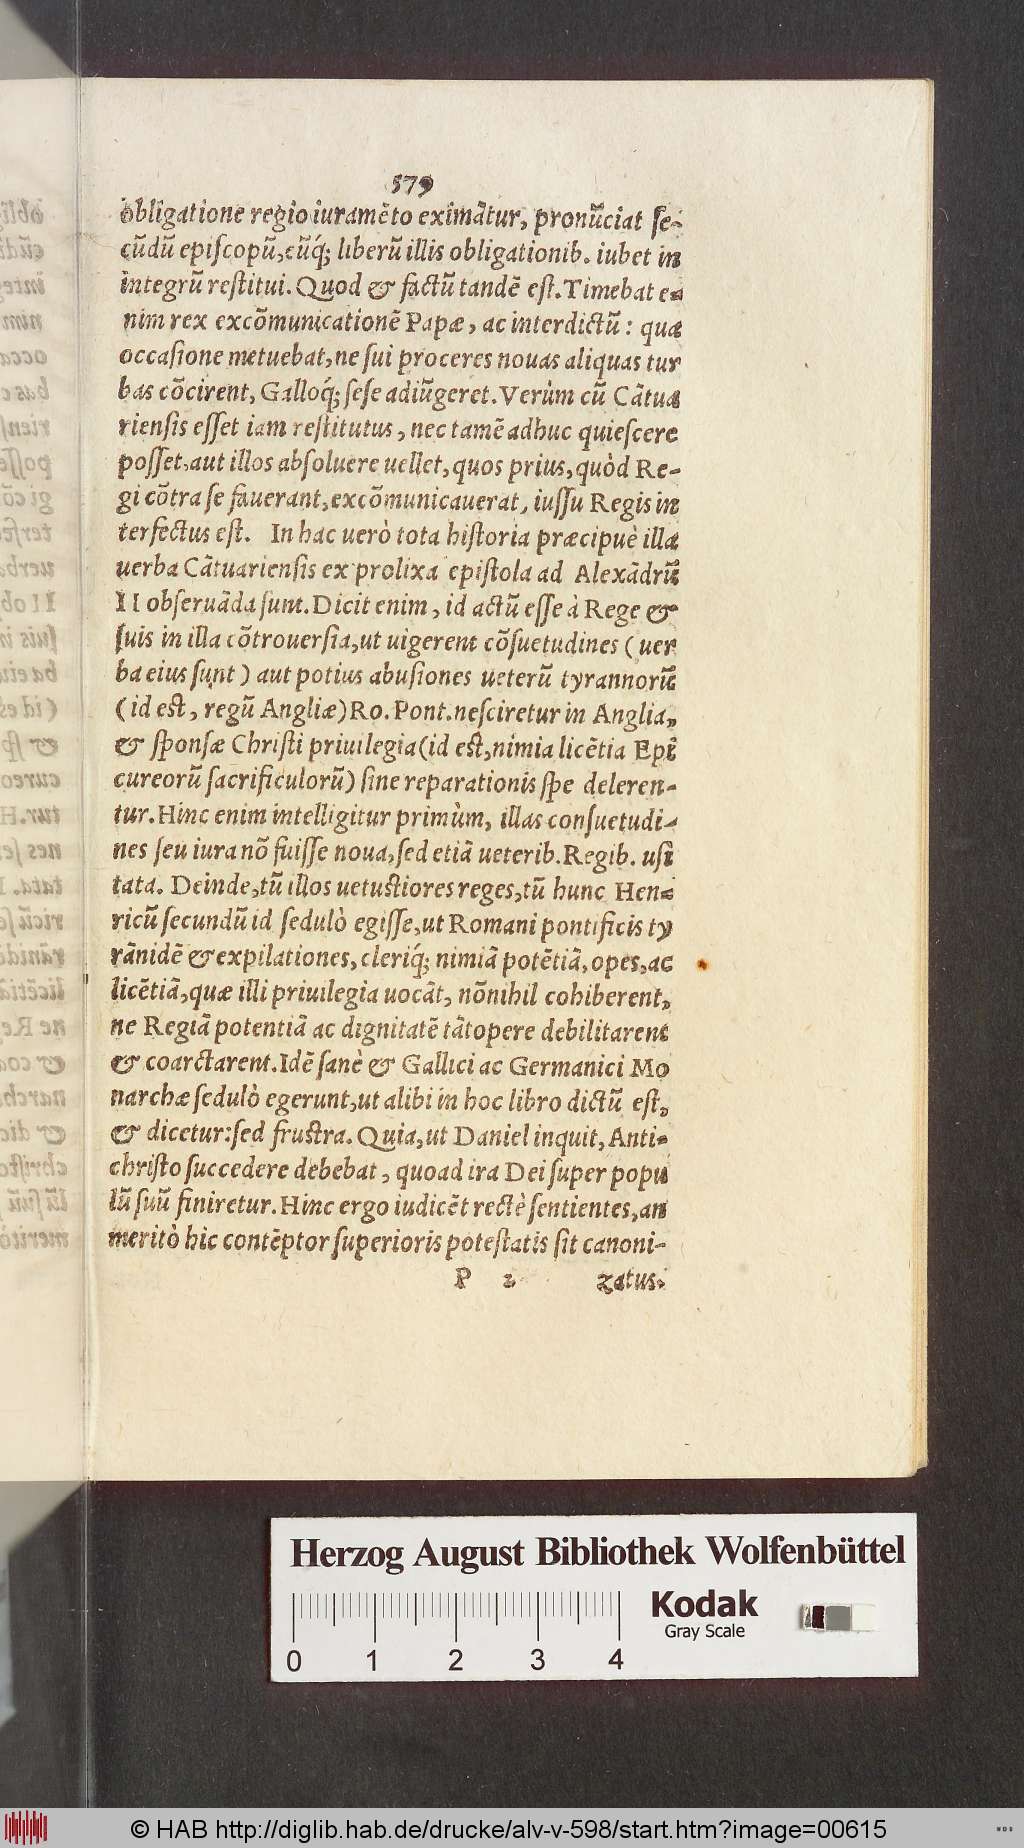 579
obligatione regio iuramẽto eximãtur, pronũciat ſe-
cũdũ epiſcopũ, eũq́; liberũ illis obligationib. iubet in
integrũ reſtitui. Quod & factũ tandẽ eſt. Timebat e-
nim rex excõmunicationẽ Papæ, ac interdictũ: qua
occaſione metuebat, ne ſui proceres nouas aliquas tur
bas cõcirent, Galloq́; ſeſe adiũgeret. Verùm cũ Cãtua
rienſis eſſet iam reſtitutus, nec tamẽ adhuc quieſcere
poſſet, aut illos abſoluere uellet, quos prius, quòd Re-
gi cõtra ſe fauerant, excõmunicauerat, iuſſu Regis in
terfectus eſt. In hac uerò tota hiſtoria præcipuè illa
uerba Cãtuarienſis ex prolixa epiſtola ad Alexãdrũ
II obſeruãda ſunt. Dicit enim, id actũ eſſe à Rege &
ſuis in illa cõtrouerſia, ut uigerent cõſuetudines (uer
ba eius ſunt) aut potius abuſiones ueterũ tyrannorũ
(id eſt, regũ Angliæ) Ro. Pont. neſciretur in Anglia,
& ſponſæ Chriſti priuilegia (id eſt, nimia licẽtia Epi
cureorũ ſacrificulorũ) ſine reparationis ſpe deleren-
tur. Hinc enim intelligitur primùm, illas conſuetudi-
nes ſeu iura nõ fuiſſe noua, ſed etiã ueterib. Regib. uſi
tata. Deinde, tũ illos uetuſtiores reges, tũ hunc Hen-
ricũ ſecundũ id ſedulò egiſſe, ut Romani pontificis ty
rãnidẽ & expilationes, cleriq́; nimiã potẽtiã, opes, ac
licẽtiã, quæ illi priuilegia uocãt, nõnihil cohiberent,
ne Regiã potentiã ac dignitatẽ tãtopere debilitarent
& coarctarent. Idẽ ſanè & Gallici ac Germanici Mo
narchæ ſedulò egerunt, ut alibi in hoc libro dictũ eſt,
& dicetur: ſed fruſtra. Quia, ut Daniel inquit, Anti-
chriſto ſuccedere debebat, quoad ira Dei ſuper popu
lũ ſuũ finiretur. Hinc ergo iudicẽt rectè ſentientes, an
meritò hic contẽptor ſuperioris poteſtatis ſit canoni-
P 2 zatus.
Herzog August Bibliothek Wolfenbüttel
Kodak
Gray Scale
0 1 2 3 4
© HAB http://diglib.hab.de/drucke/alv-v-598/start.htm?image=00615